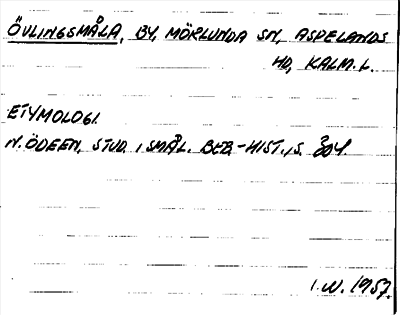 ÖVLINGSMÅLA, BY, MÖRLUNDA SN, ASPELANDS
HD, KALM. L.
ETYMOLOGI.
N. ÖDEEN, STUD. I SMÅL. BEB.-HIST., S. 304.
I.W. 1957.